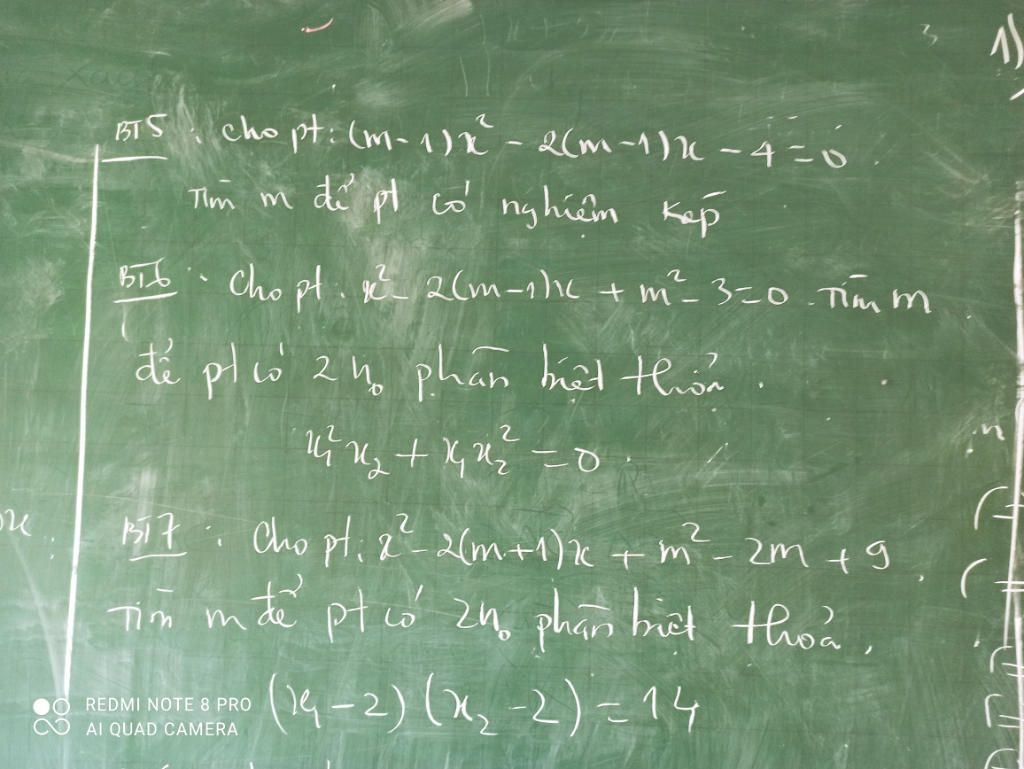 1)
BT5 : Cho pt: (m-1)x² - 2(m-1)x - 4 = 0.
Tìm m để pt có nghiệm kép
BT6 : Cho pt: x² - 2(m-1)x + m² - 3 = 0. Tìm m
để pt có 2 n₀ phân biệt thỏa.
x₁²x₂ + x₁x₂² = 0.
BT7 : Cho pt: x² - 2(m+1)x + m² - 2m + 9.
Tìm m để pt có 2n₀ phân biệt thỏa.
(x₁ - 2) (x₂ - 2) = 14
REDMI NOTE 8 PRO
AI QUAD CAMERA